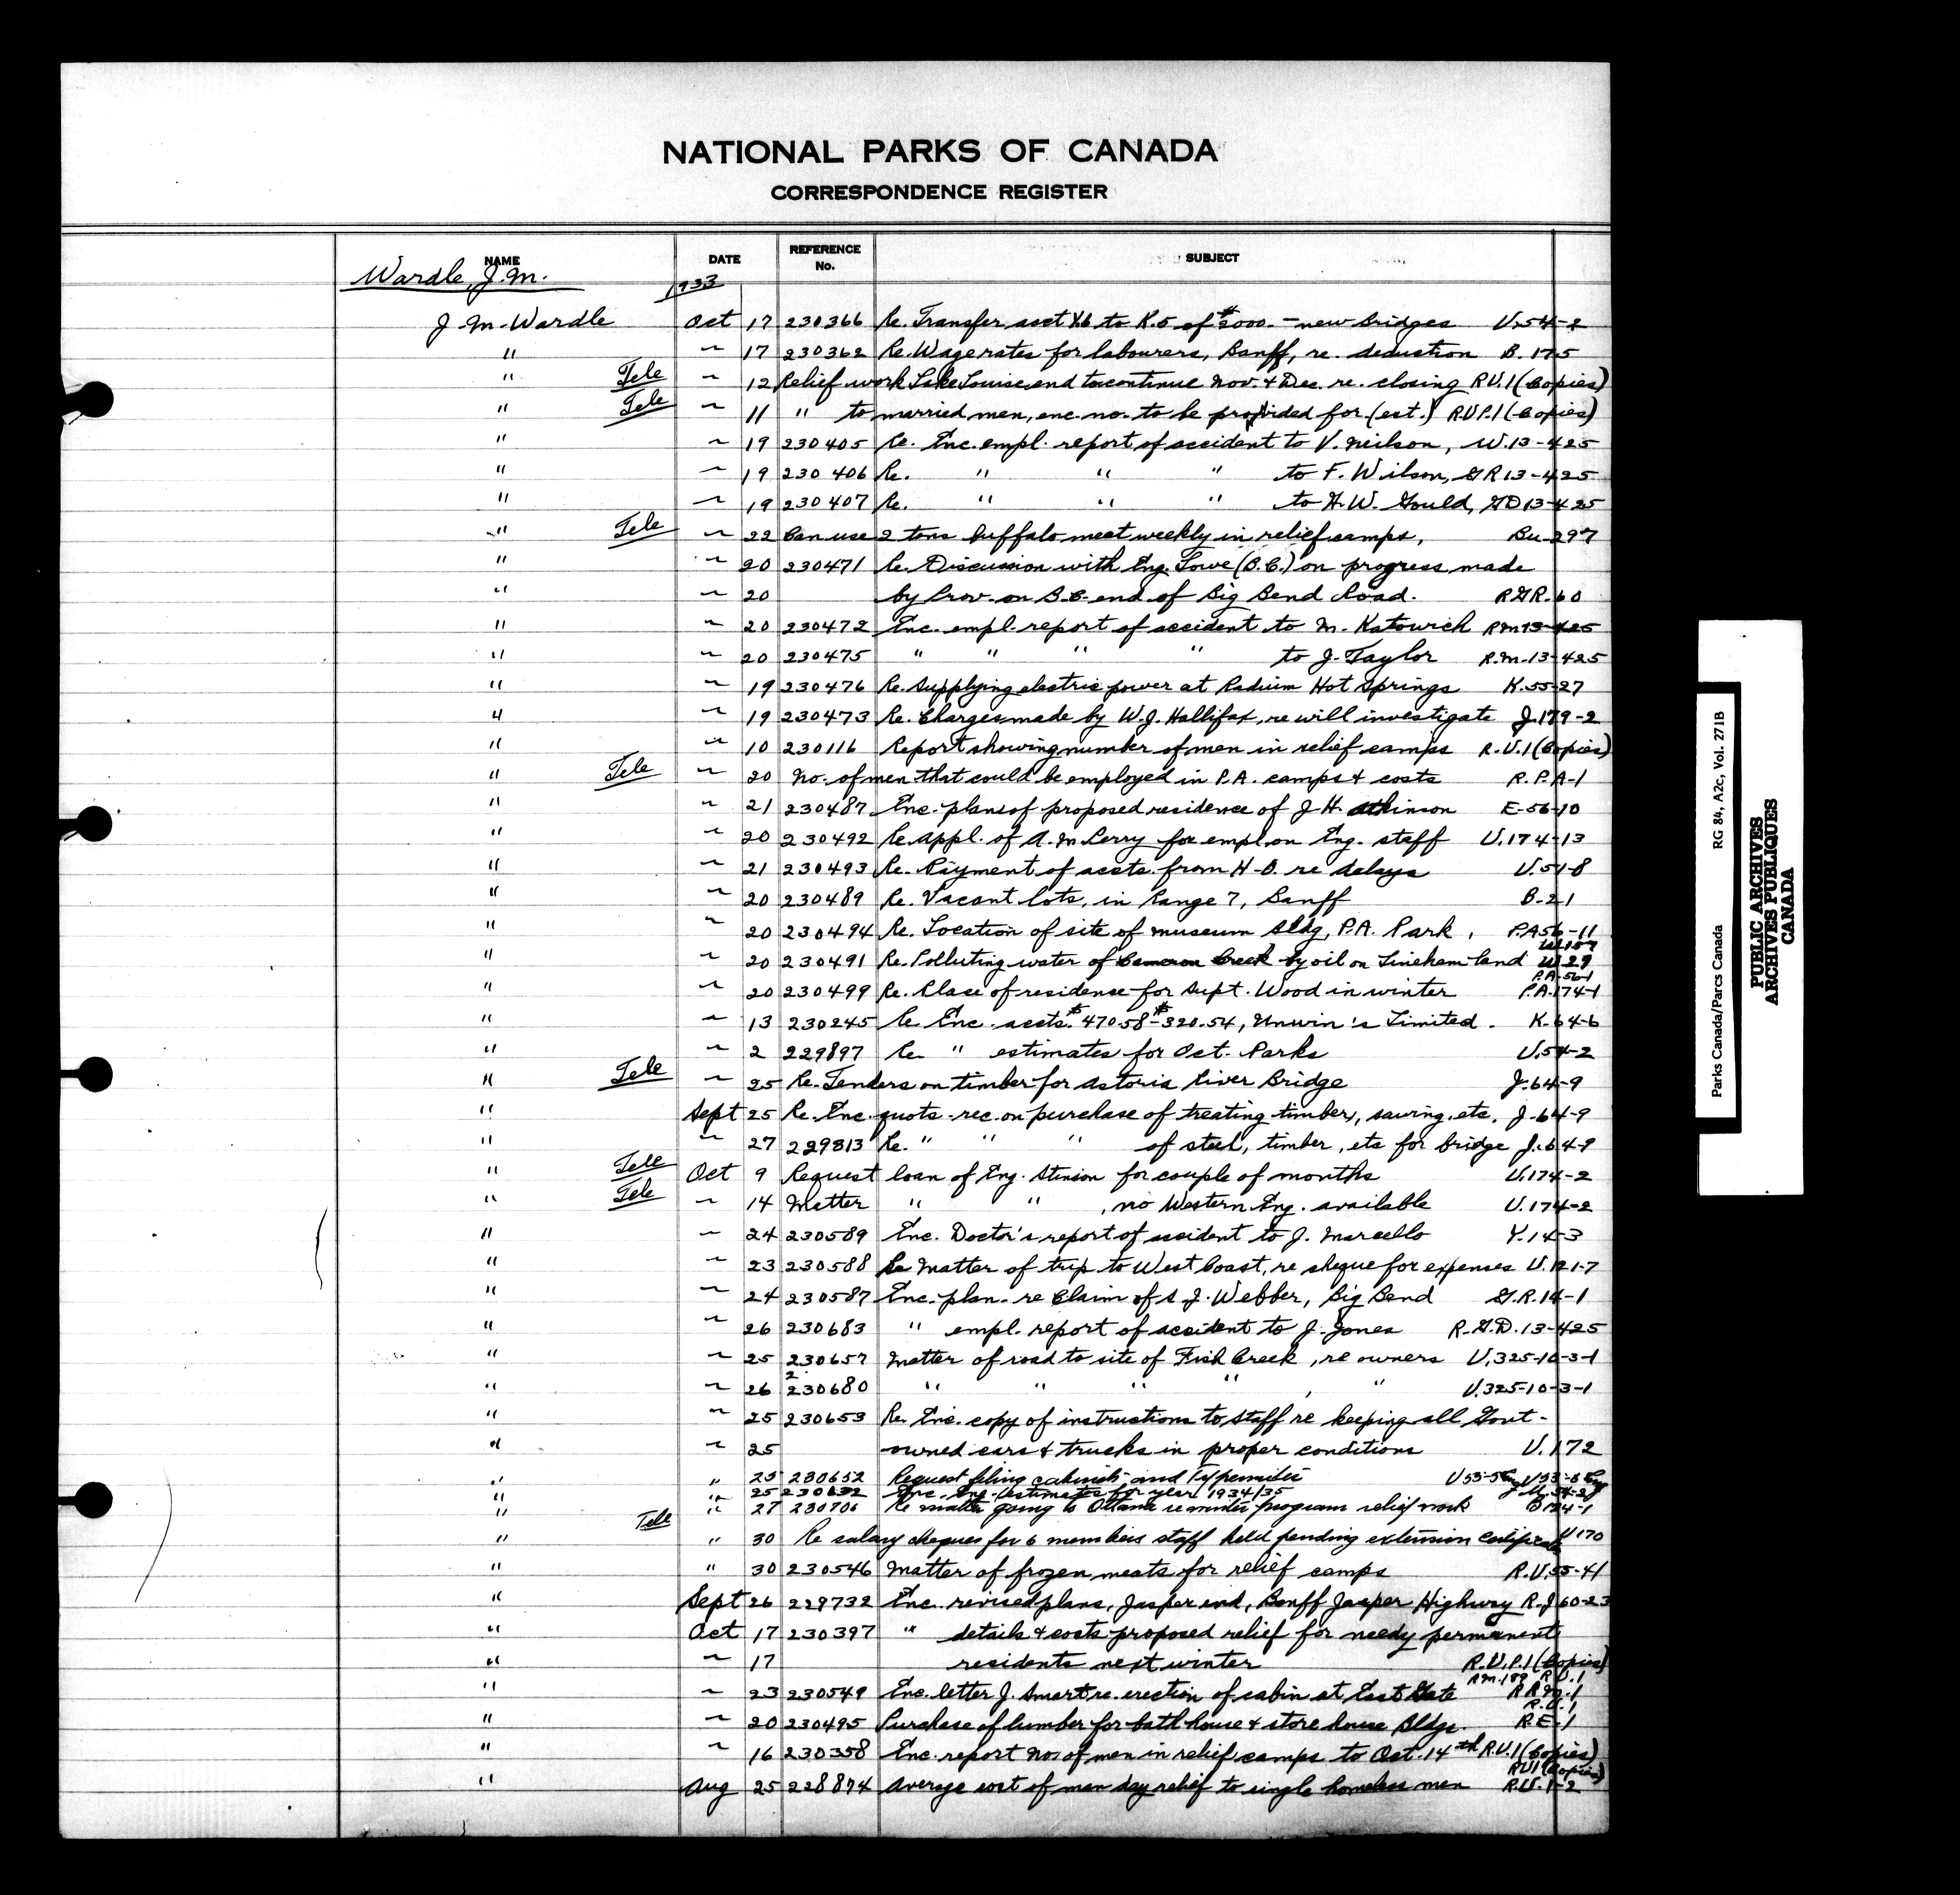 NATIONAL PARKS OF CANADA
CORRESPONDENCE REGISTER
NAME DATE REFERENCE No. SUBJECT
Wardle, J.M. 1933
J. M. Wardle Oct 17 230366 Re. Transfer acct to K.5 of $2000. - new bridges U.54-2
" ~ 17 230362 Re. Wage rates for labourers, Banff, re. deduction B.175
" Tele ~ 12 Relief work Lake Louise end to continue Nov. & Dec. re. closing R.U.1 (Copies)
" Tele ~ 11 " to married men, enc. no. to be provided for (est.) R.U.P.1 (Copies)
" ~ 19 230405 Re. Enc. empl. report of accident to V. Neilson, W.13-425
" ~ 19 230406 Re. " " " to F. Wilson, GR 13-425
" ~ 19 230407 Re. " " " to H.W. Gould, GD 13-425
" Tele ~ 22 Can use 2 tons buffalo meat weekly in relief camps, Bu-297
" ~ 20 230471 Re. Discussion with Eng. Lowe (B.C.) on progress made
" ~ 20 by Prov. on B.C. end of Big Bend Road. RGR.60
" ~ 20 230472 Enc. empl. report of accident to M. Katowich RM13-425
" ~ 20 230475 " " " " to J. Taylor R.M.13-425
" ~ 19 230476 Re. Supplying electric power at Radium Hot Springs K.55-27
" ~ 19 230473 Re. Charges made by W.J. Hallifax, re will investigate J.179-2
" ~ 10 230116 Report showing number of men in relief camps R.U.1 (Copies)
" Tele ~ 20 No. of men that could be employed in P.A. camps & costs R.P.A-1
" ~ 21 230487 Enc. plans of proposed residence of J.H. Atkinson E-56-10
" ~ 20 230492 Re. appl. of A.M. Perry for empl. on Eng. staff U.174-13
" ~ 21 230493 Re. Payment of accts from H.O. re delays U.51-8
" ~ 20 230489 Re. Vacant lots, in Range 7, Banff B-21
" ~ 20 230494 Re. Location of site of museum bldg, P.A. Park, P.A56-11
" ~ 20 230491 Re. Polluting water of Cameron Creek by oil on Lineham land W.29
" ~ 20 230499 Re. Place of residence for Supt. Wood in winter P.A.56-1 P.A.174-1
" ~ 13 230245 Re Enc. accts. $470.58 - $320.54, Unwin's Limited. K.64-6
" ~ 2 229897 Re. " estimates for Oct. Parks U.54-2
" Tele ~ 25 Re. Tenders on timber for Astoria River Bridge J.64-9
" Sept 25 Re. Enc. quots. rec. on purchase of treating timber, sawing, etc. J-64-9
" ~ 27 229813 Re. " " " of steel, timber, etc for bridge J.64-9
" Tele Oct 9 Request loan of Eng. Stinson for couple of months U.174-2
" Tele ~ 14 Matter " " , no Western Eng. available U.174-2
" ~ 24 230589 Enc. Doctor's report of accident to J. Marcello Y.14-3
" ~ 23 230588 Re Matter of trip to West Coast, re cheque for expenses U.121-7
" ~ 24 230587 Enc. plan re claim of S.J. Webber, Big Bend G.R.14-1
" ~ 26 230683 " empl. report of accident to J. Jones R.G.D.13-425
" ~ 25 230657 Matter of road to site of Fish Creek, re owners U.325-10-3-1
" ~ 26 230680 " " " " , " U.325-10-3-1
" ~ 25 230653 Re. Enc. copy of instructions to staff re keeping all Govt-
" ~ 25 owned cars & trucks in proper conditions U.172
" " 25 230652 Request filing cabinets and Typewriter
" " 25 230632 Enc. Eng. estimates for year 1934/35
" " 27 230706 Re matter going to Ottawa re winter program relief work
" Tele " 30 Re salary cheques for 6 members staff held pending extension certificate U170
" " 30 230546 Matter of frozen meats for relief camps R.U.55-41
" Sept 26 229732 Enc. revised plans, Jasper end, Banff Jasper Highway R.J60-23
" Oct 17 230397 " details & costs proposed relief for needy permanent
" ~ 17 residents next winter R.U.P.1 (Copies)
" ~ 23 230549 Enc. letter J. Smart re. erection of cabin at East Gate RM.189 R.U.1 R.RM.1
" ~ 20 230495 Purchase of lumber for bath house & store house Bldgs. R.U.1 R.E.1
" ~ 16 230358 Enc. report No. of men in relief camps to Oct. 14th R.U.1 (Copies)
" Aug 25 228874 Average cost of man day relief to single homeless men RU1 (Copies) R.U.1-2
Parks Canada/Parcs Canada RG 84, A2c, Vol. 271B
PUBLIC ARCHIVES
ARCHIVES PUBLIQUES
CANADA